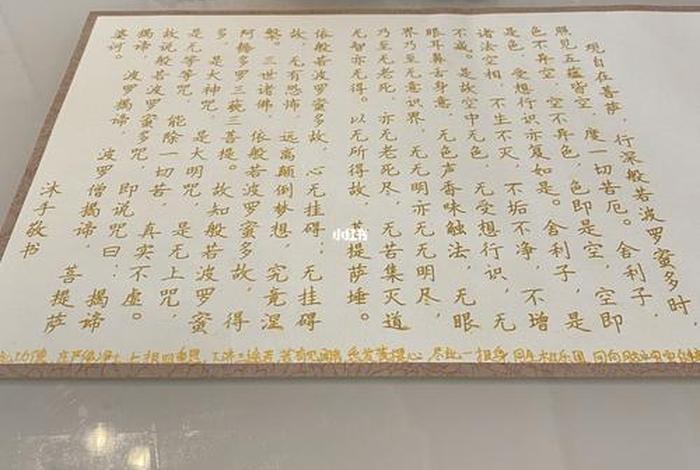 观自在菩萨，行深般若波罗蜜多时，
照见五蕴皆空，度一切苦厄。舍利子，
色不异空，空不异色，色即是空，空即
是色，受想行识亦复如是。舍利子，是
诸法空相，不生不灭，不垢不净，不增
不减。是故空中无色，无受想行识，无
眼耳鼻舌身意，无色声香味触法，无眼
界乃至无意识界，无无明亦无无明尽，
乃至无老死，亦无老死尽，无苦集灭道
无智亦无得。以无所得故，菩提萨埵。
依般若波罗蜜多故，心无挂碍，无挂碍
故，无有恐怖，远离颠倒梦想，究竟涅
槃。三世诸佛，依般若波罗蜜多故，得
阿耨多罗三藐三菩提。故知般若波罗蜜
多，是大神咒，是大明咒，是无上咒，
是无等等咒，能除一切苦，真实不虚。
故说般若波罗蜜多咒，即说咒曰：揭谛
揭谛，波罗揭谛，波罗僧揭谛，菩提萨
婆诃。
沐手敬书
庄严佛净土 上报四重恩 下济三途苦 若有见闻者 悉发菩提心 尽此一报身 同生极乐国 回向
小红书